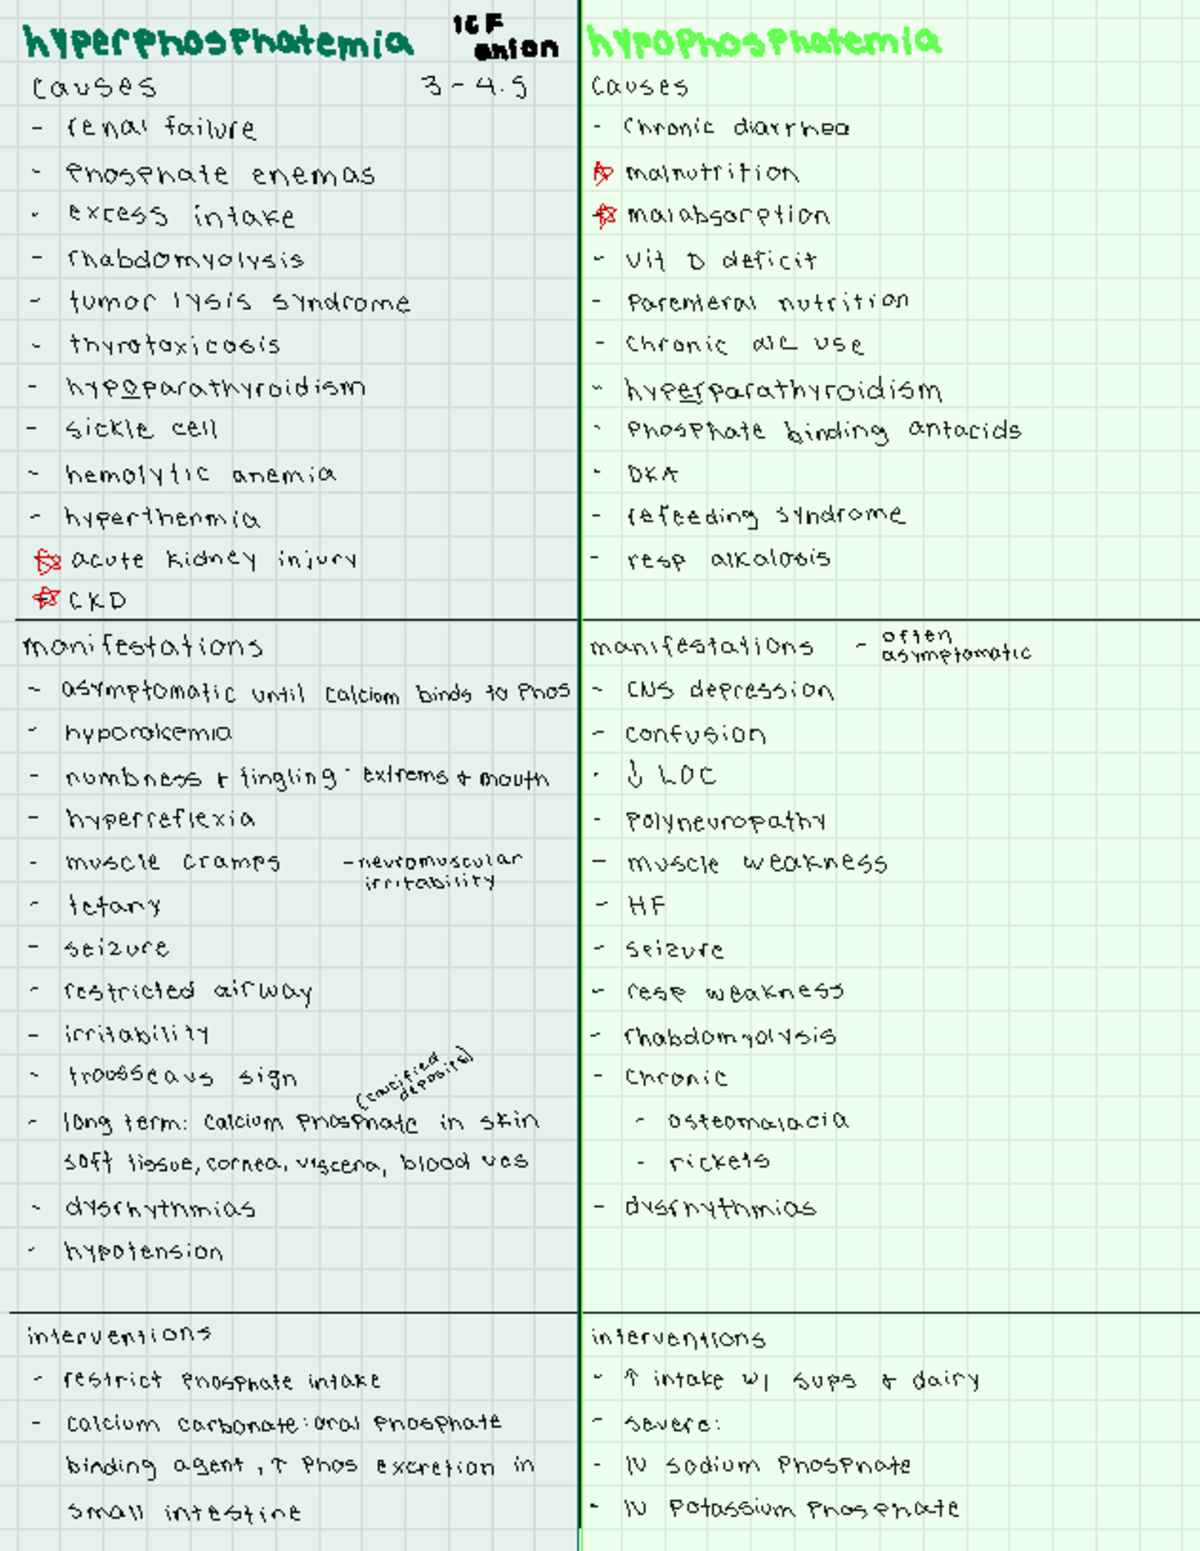 hyperphosphatemia
ICF
anion
causes
3 - 4.5
- renal failure
- phosphate enemas
- excess intake
- rhabdomyolysis
- tumor lysis syndrome
- thyrotoxicosis
- hypoparathyroidism
- sickle cell
- hemolytic anemia
- hyperthermia
acute kidney injury
CKD
manifestations
- asymptomatic until calcium binds to phos
- hypocakemia
- numbness + tingling - extrems + mouth
- hyperreflexia
- muscle cramps
- neuromuscular
irritability
- tetany
- seizure
- restricted airway
- irritability
- trousseaus sign
(calcified
deposits)
- long term: calcium phosphate in skin
soft tissue, cornea, viscera, blood ves
- dysrhythmias
- hypotension
interventions
- restrict phosphate intake
- calcium carbonate: oral phosphate
binding agent, ↑ phos excretion in
small intestine
hypophosphatemia
causes
- chronic diarrhea
malnutrition
malabsorption
- vit D deficit
- parenteral nutrition
- chronic alc use
- hyperparathyroidism
- phosphate binding antacids
- DKA
- refeeding syndrome
- resp alkalosis
manifestations
- often
asymptomatic
- CNS depression
- confusion
- ↓ LOC
- polyneuropathy
- muscle weakness
- HF
- seizure
- resp weakness
- rhabdomyolysis
- chronic
- osteomalacia
- rickets
- dysrhythmias
interventions
- ↑ intake w/ sups + dairy
- severe:
- IV sodium phosphate
- IV potassium phosphate